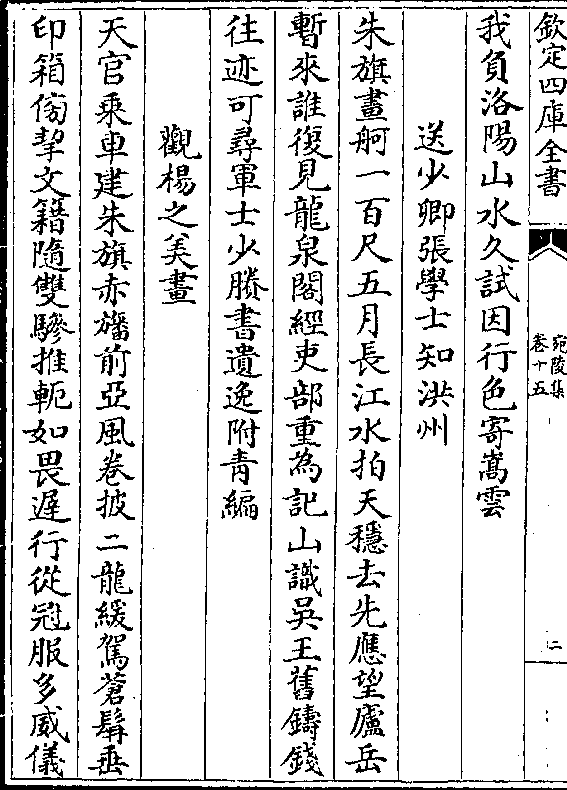 欽定四庫全書
宛陵集
卷十五
二
我負洛陽山水久試因行色寄嵩雲
送少卿張學士知洪州
朱旗畫舸一百尺五月長江水拍天穩去先應望廬岳
暫來誰復見龍泉閣經吏部重為記山識吳王舊鑄錢
往迹可尋軍士少勝書遺逸附青編
觀楊之美畫
天官乘車建朱旗赤旛前亞風卷披二龍緩駕蒼髯垂
印箱傍挈文籍隨雙驂推軛如畏遲行從冠服多威儀